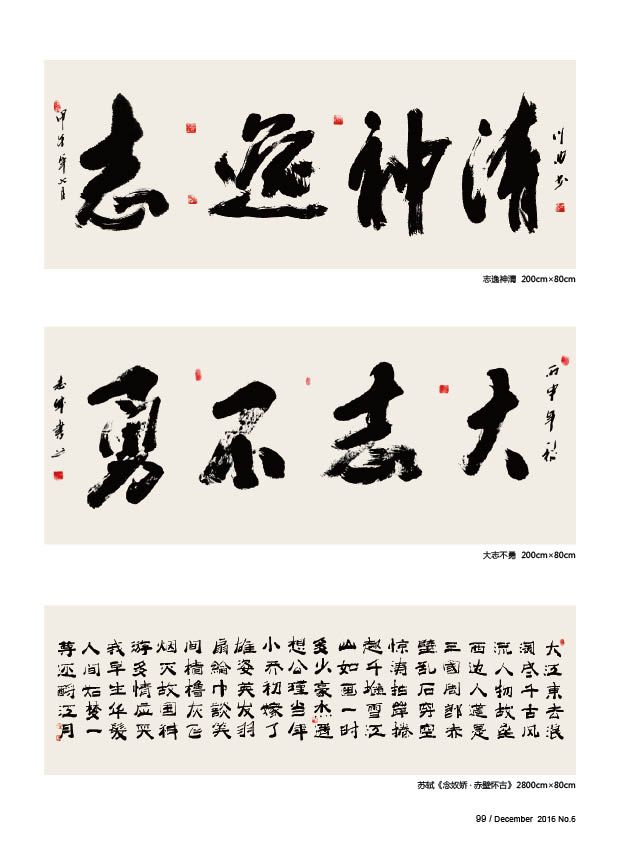 清神逸志
甲午年七月
志逸神清 200cm×80cm
丙申年秋
大志不勇
大志不勇 200cm×80cm
大江東去浪
淘尽千古风
流人物故垒
西边人道是
三國周郎赤
壁乱石穿空
惊涛拍岸捲
起千堆雪江
山如画一时
多少豪杰遥
想公瑾当年
小乔初嫁了
雄姿英发羽
扇綸巾談笑
间樯櫓灰飞
烟灭故国神
游多情应笑
我早生华髮
人间如梦一
尊还酹江月
苏轼《念奴娇·赤壁怀古》2800cm×80cm
99 / December 2016 No.6